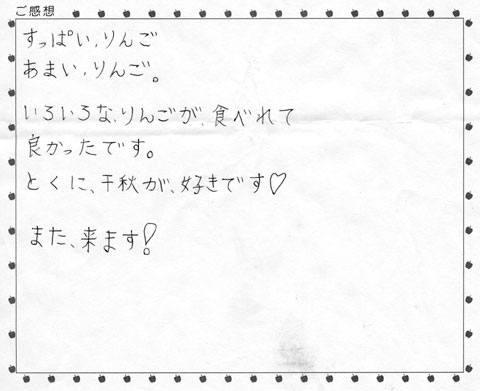 ご感想
すっぱい、りんご
あまい、りんご。
いろいろな、りんごが、食べれて
良かったです。
とくに、千秋が、好きです♡
また、来ます!